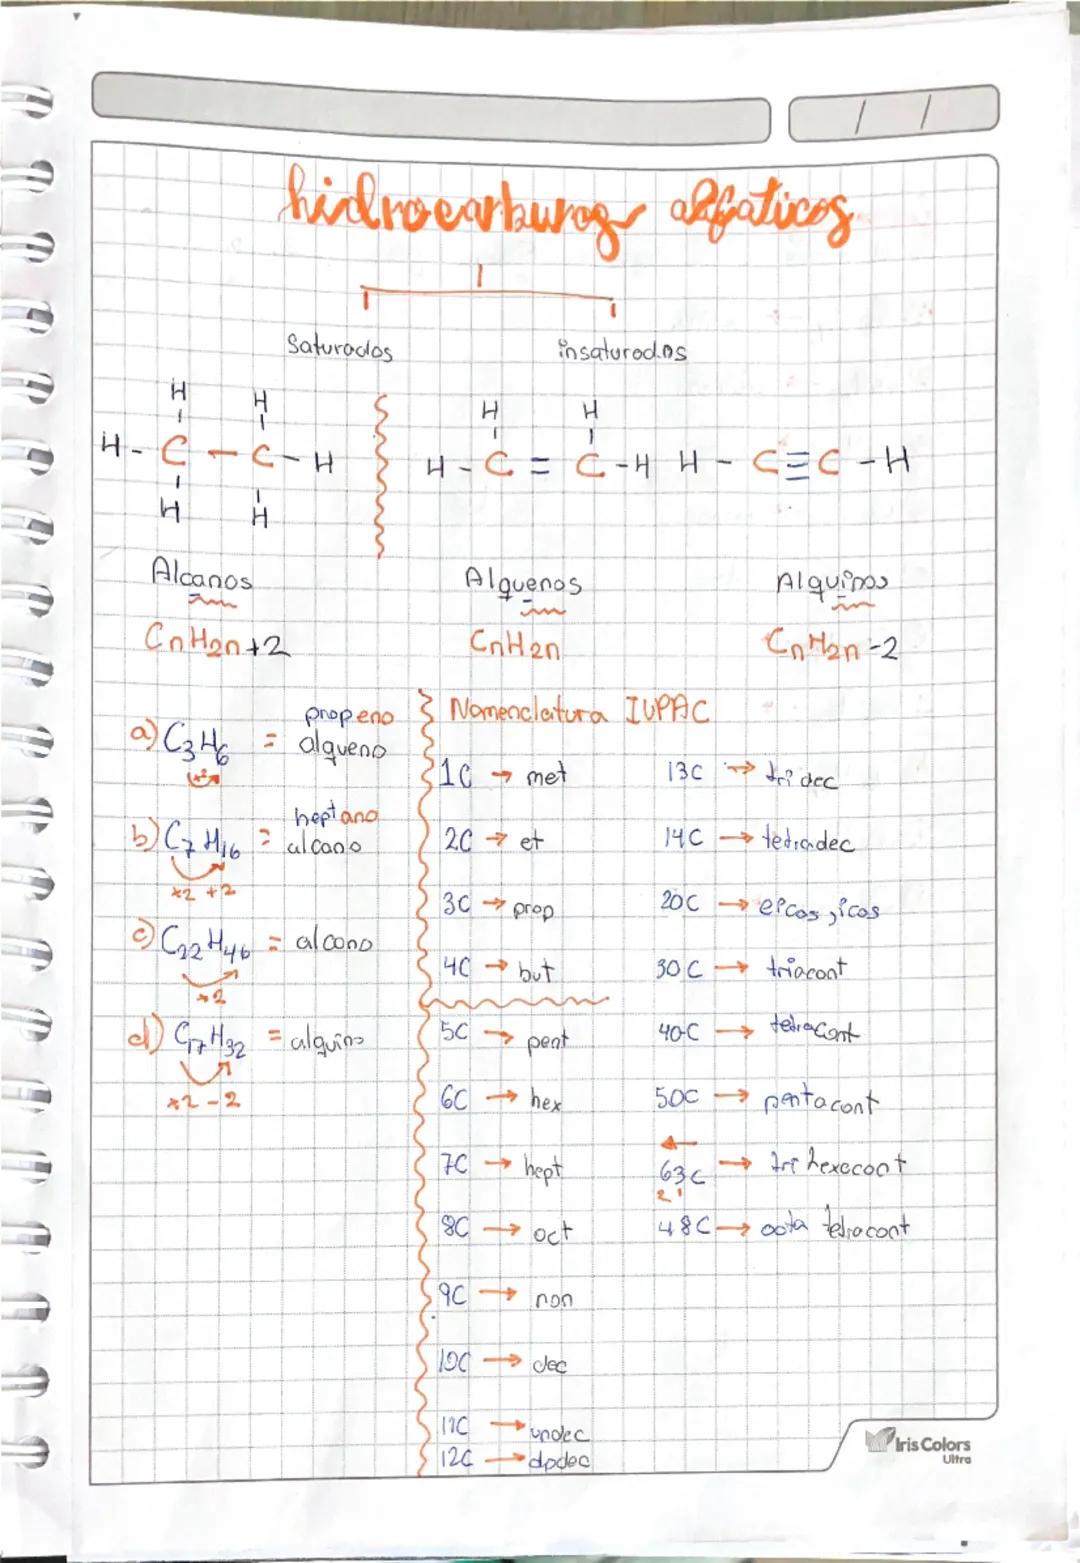 / /
hidrocarburos alifaticos
Saturados insaturados
H H
H - C - C - H
H H
H H
H - C = C - H H - C ≡ C - H
Alcanos Alquenos Alquinos
CnH2n+2 CnH2n CnH2n-2
propeno
a) C3H6 = alqueno
x2
heptano
b) C7H16 = alcano
x2 +2
c) C22H46 = alcano
x2
d) C17H32 = alquino
x2 - 2
Nomenclatura IUPAC
1C → met
2C → et
3C → prop
4C → but
5C → pent
6C → hex
7C → hept
8C → oct
9C → non
10C → dec
11C → undec
12C → dodec
13C → tridec
14C → tetradec
20C → eicos, icos
30C → triacont
40C → tetracont
50C → pentacont
←
63C → tri hexacont
2 1
48C → octa tetracont
Iris Colors
Ultra